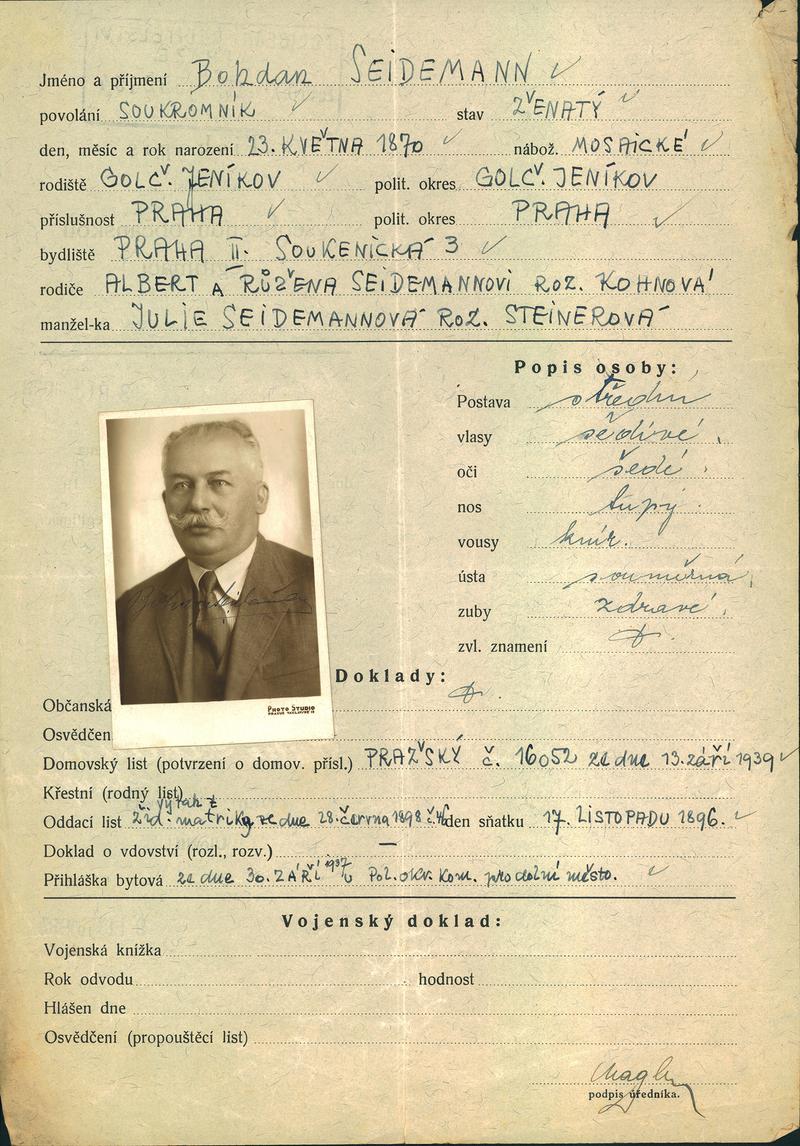 Jméno a příjmení Bohdan SEIDEMANN
povolání SOUKROMNÍK stav ŽENATÝ
den, měsíc a rok narození 23. KVĚTNA 1870 nábož. MOSAICKÉ
rodiště GOLČ. JENÍKOV polit. okres GOLČ. JENÍKOV
příslušnost PRAHA polit. okres PRAHA
bydliště PRAHA II. SOUKENICKÁ 3
rodiče ALBERT A RŮŽENA SEIDEMANNOVI ROZ. KOHNOVÁ
manžel-ka JULIE SEIDEMANNOVÁ ROZ. STEINEROVÁ
Popis osoby:
Postava střední
vlasy šedivé
oči šedé
nos tupý
vousy knír.
ústa souměrná
zuby zdravé
zvl. znamení
Doklady:
Občanská
Osvědčen
PHOTO STUDIO
Domovský list (potvrzení o domov. přísl.) PRAŽSKÝ č. 16052 ze dne 13. září 1939
Křestní (rodný list)
Oddací list výtah z žid. matriky ze dne 28. června 1898 den sňatku 17. LISTOPADU 1896.
Doklad o vdovství (rozl., rozv.) —
Přihláška bytová ze dne 30. ZÁŘÍ 1937 Pol. okr. kom. pro dolní město.
Vojenský doklad:
Vojenská knížka
Rok odvodu hodnost
Hlášen dne
Osvědčení (propouštěcí list)
podpis úředníka.